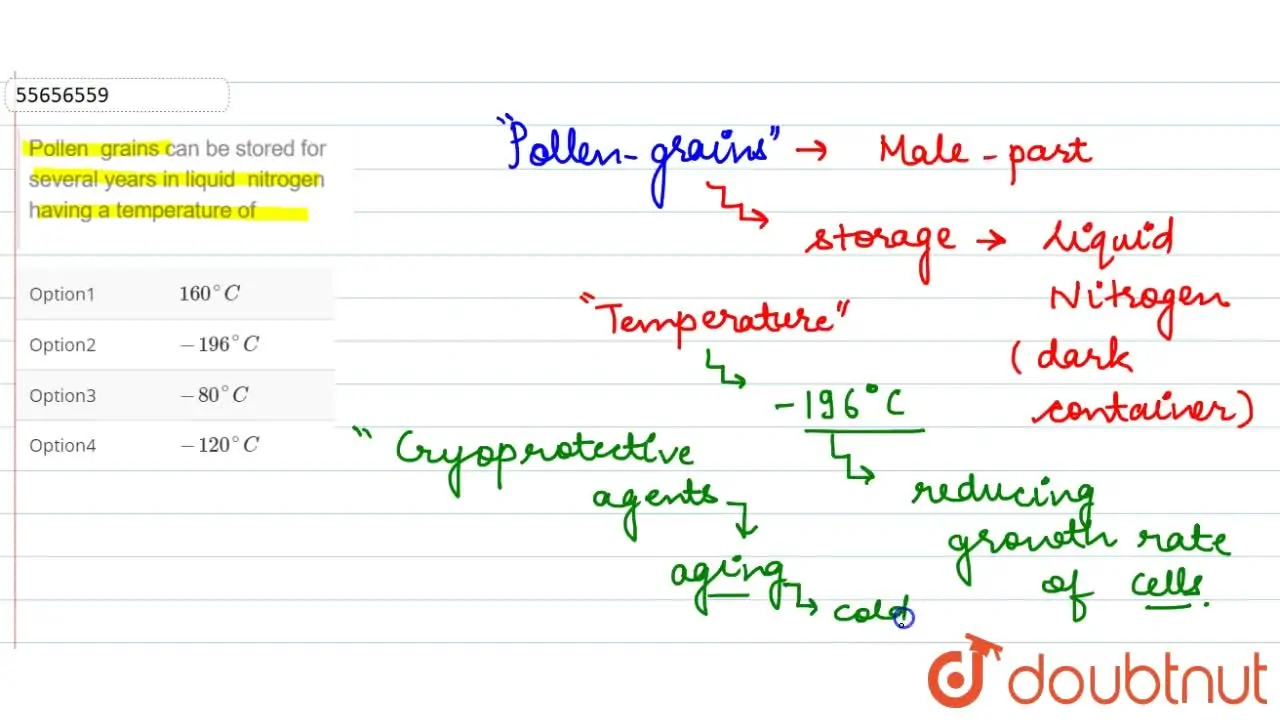 55656559
Pollen grains can be stored for
several years in liquid nitrogen
having a temperature of
Option1 160°C
Option2 −196°C
Option3 −80°C
Option4 −120°C
"Pollen-grains" → Male-part
storage → Liquid
Nitrogen
(dark
container)
"Temperature"
-196°C
reducing
growth rate
of cells.
"Cryoprotective
agents
aging
cold
doubtnut